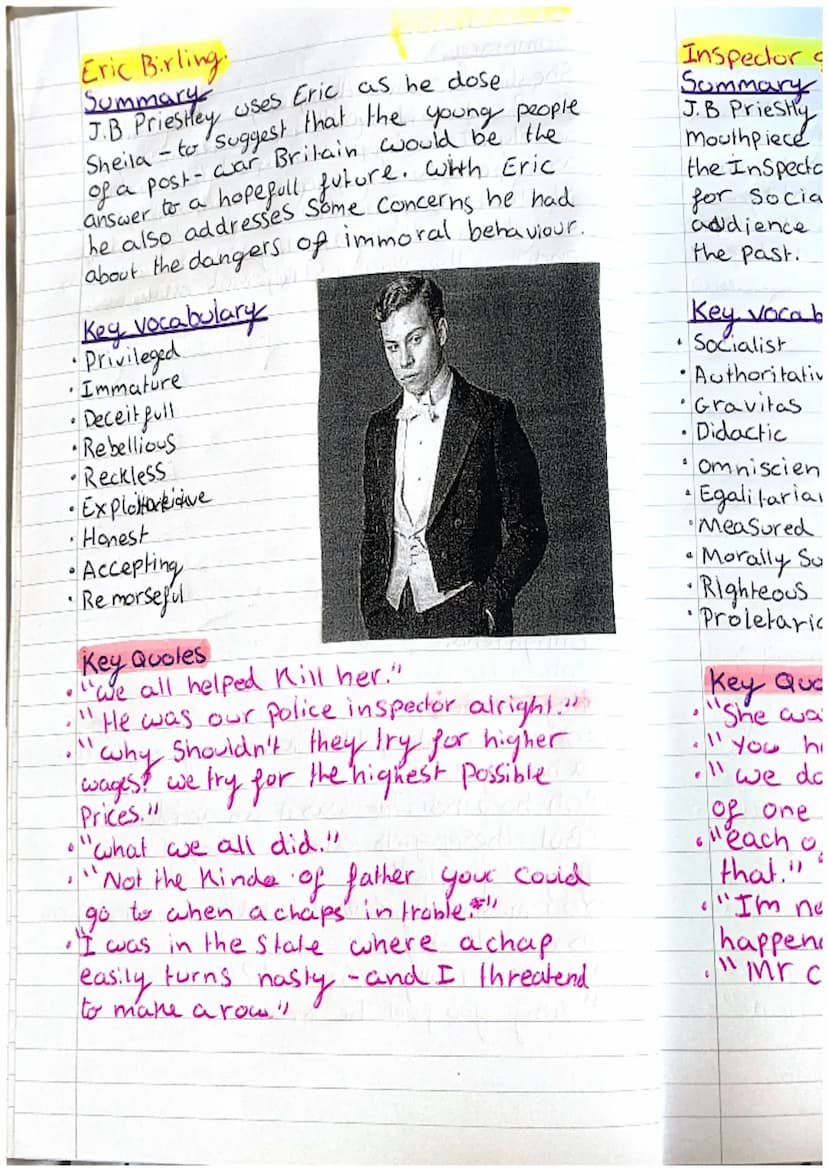 Eric Birling.
Summary
J.B Priestley uses Eric as he dose
Sheila - to suggest that the young people
of a post-war Britain would be the
answer to a hopefull future. With Eric
he also addresses some concerns he had
about the dangers of immoral behaviour.
Key vocabulary
• Privileged
• Immature
• Deceitfull
• Rebellious
• Reckless
• Honest
• Accepting
• Remorseful
Key Quotes
• "We all helped Kill her."
• "He was our Police inspector alright."
• "why Shouldn't they try for higher
wages? we try for the highest Possible
Prices."
• "what we all did."
• "Not the Kinda of father your could
go to when a chaps in troble."
• "I was in the state where a chap
easily turns nasty - and I threatend
to make a row."
Inspector
Summary
J.B Priestly
Mouthpiece
the Inspecto
for Socia
audience
the Past.
Key vocab
• Socialist
• Authoritativ
• Gravitas
• Didactic
• Omniscien
• Egalitaria
• Measured
• Morally Su
• Righteous
• Proletaric
Key Quo
• "She wa
• "You h
• "we do
of one
• "each o
that."
• "I'm ne
happen
• "Mr c